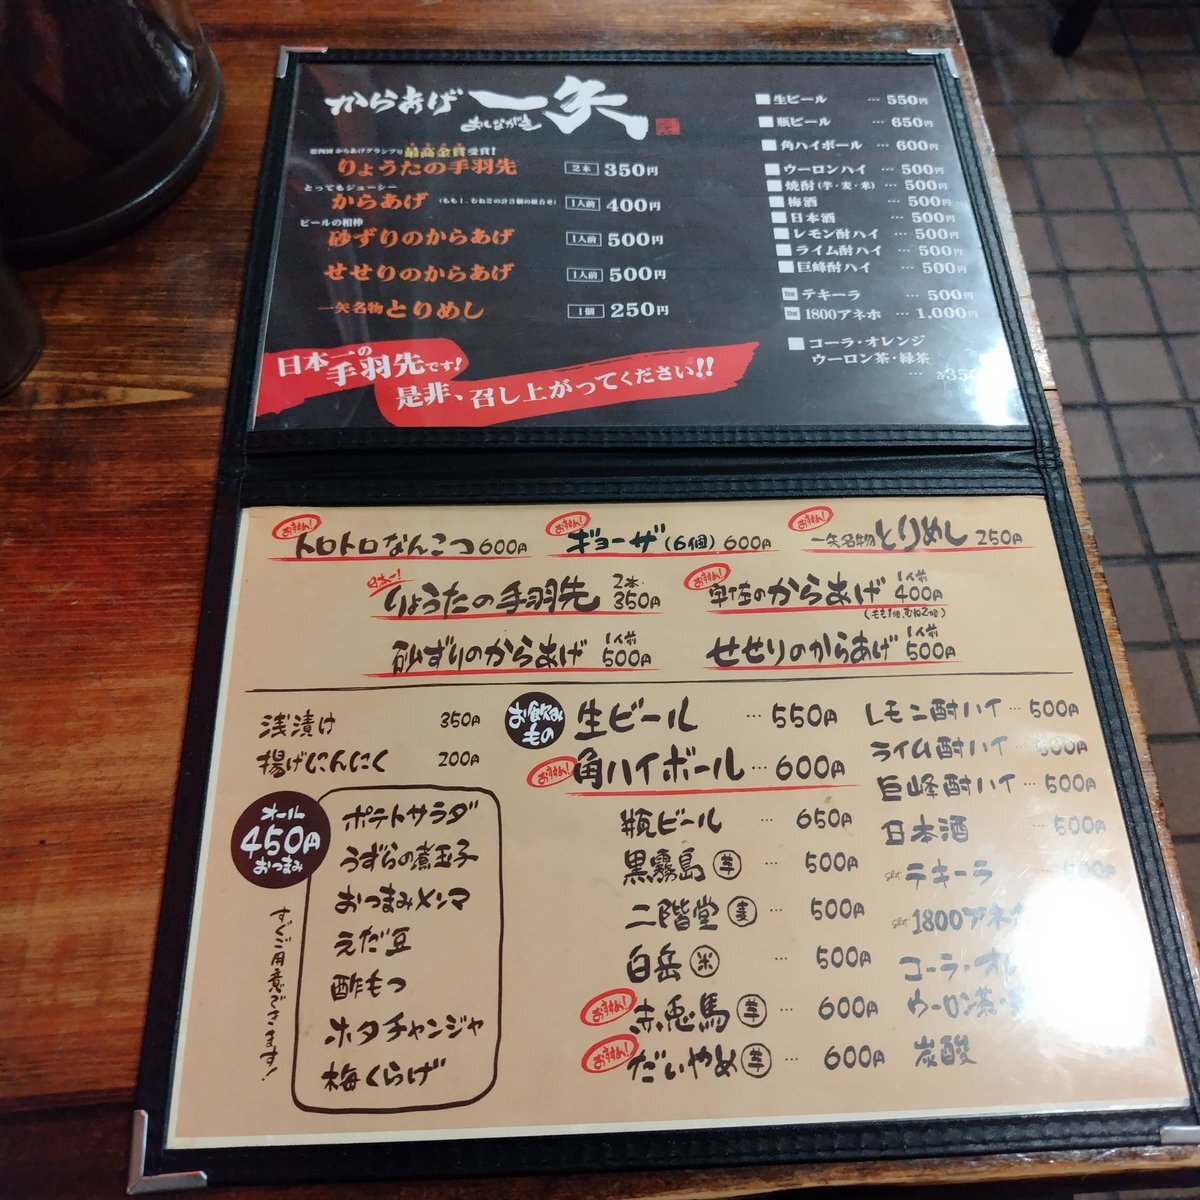 からあげ 一矢
おしながき
第四回 からあげグランプリ 最高金賞受賞!
りょうたの手羽先 2本 350円
とってもジューシー
からあげ (もも1、むね2の計3個の組合せ) 1人前 400円
ビールの相棒
砂ずりのからあげ 1人前 500円
せせりのからあげ 1人前 500円
一矢名物 とりめし 1個 250円
日本一の手羽先です!
是非、召し上がってください!!
生ビール … 550円
瓶ビール … 650円
角ハイボール … 600円
ウーロンハイ … 500円
焼酎(芋・麦・米) … 500円
梅酒 … 500円
日本酒 … 500円
レモン酎ハイ … 500円
ライム酎ハイ … 500円
巨峰酎ハイ … 500円
Shot テキーラ … 500円
Shot 1800アネホ … 1,000円
コーラ・オレンジ
ウーロン茶・緑茶
… 各350
おすすめ! トロトロなんこつ 600円
おすすめ! ギョーザ(6個) 600円
おすすめ! 一矢名物 とりめし 250円
日本一! りょうたの手羽先 2本 350円
おすすめ! 宇佐のからあげ 1人前 400円
(もも1個、むね2個)
砂ずりのからあげ 1人前 500円
せせりのからあげ 1人前 500円
浅漬け 350円
揚げにんにく 200円
オール
450円
おつまみ
すぐご用意できます!
ポテトサラダ
うずらの煮玉子
おつまみメンマ
えだ豆
酢もつ
ホタチャンジャ
梅くらげ
お飲みもの
生ビール … 550円
おすすめ! 角ハイボール … 600円
瓶ビール … 650円
黒霧島 芋 … 500円
二階堂 麦 … 500円
白岳 米 … 500円
おすすめ! 赤兎馬 芋 … 600円
おすすめ! だいやめ 芋 … 600円
レモン酎ハイ … 500円
ライム酎ハイ … 500円
巨峰酎ハイ … 500円
日本酒 … 500円
shot テキーラ … 500円
shot 1800アネホ
コーラ・オレ
ウーロン茶・
炭酸